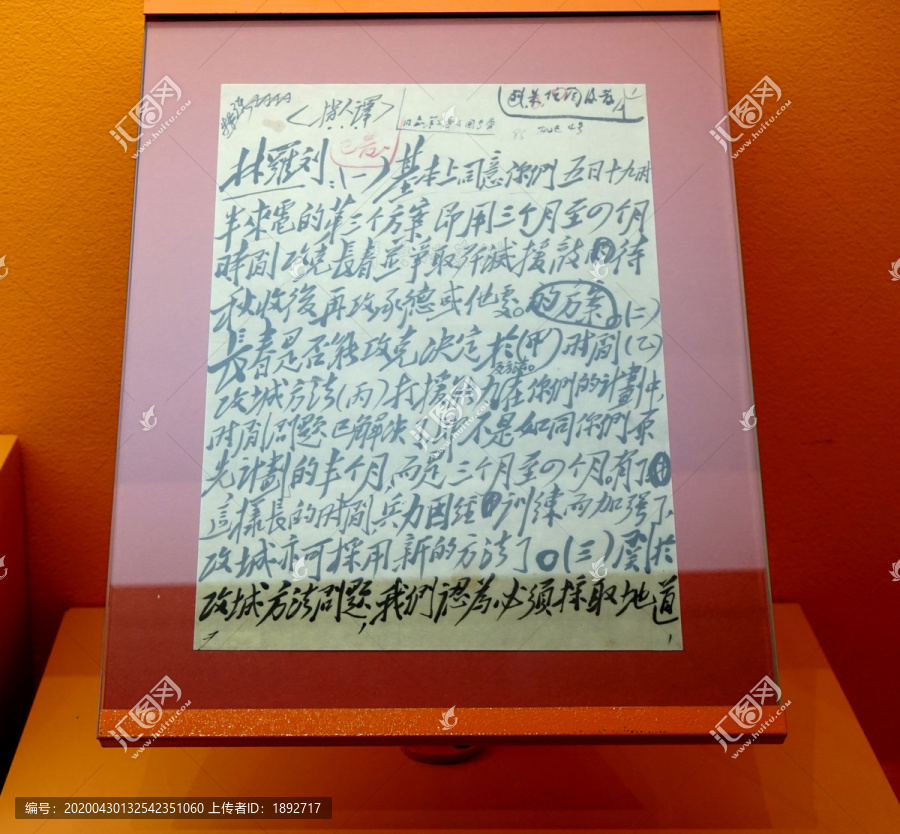 林羅刘：(一)基本上同意你們五日十九时
半來電的第三个方案即用三个月至四个月
时間攻克長春並爭取歼滅援敌的待
秋收後再攻承德或他處。的方案。(二)
長春是否能攻克決定於(甲)时間(乙)
攻城方法(丙)打援兵力。在你們的计劃中,
时間问题已解決了,不是如同你們原
先计劃的半个月,而是三个月至四个月。有了
這樣長的时間兵力因經训練而加強了,
攻城亦可採用新的方法了。(三)関於
攻城方法问题,我們認為必須採取地道
汇图网
huitu.com
编号：20200430132542351060 上传者ID：1892717